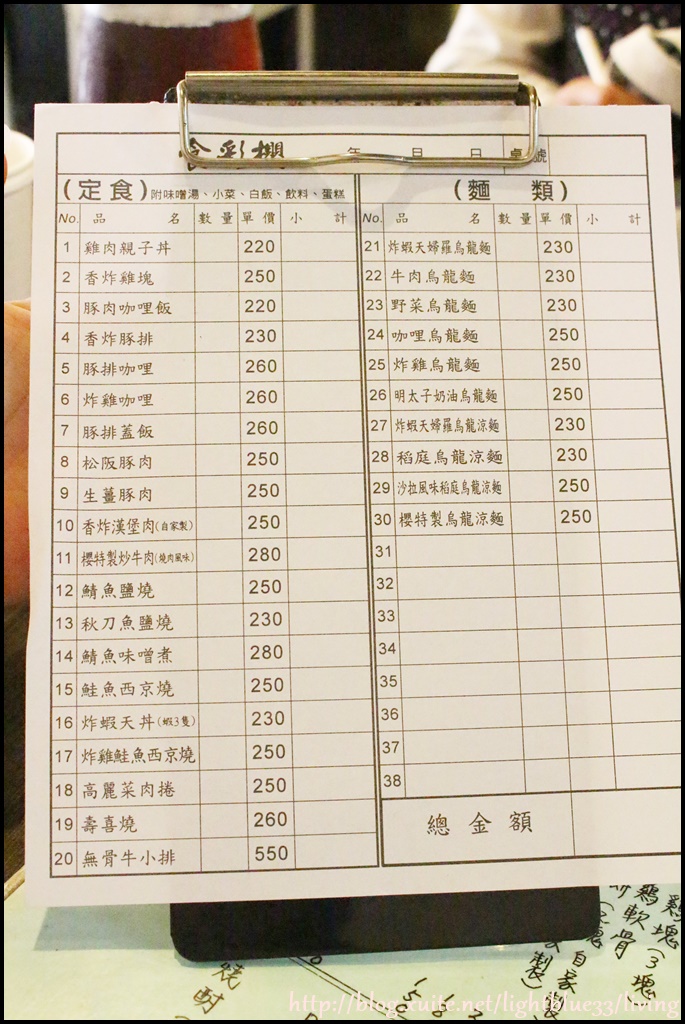 食彩櫻 年 月 日 桌號
(定食)附味噌湯、小菜、白飯、飲料、蛋糕
No. 品 名 數量 單價 小 計
1 雞肉親子丼 220
2 香炸雞塊 250
3 豚肉咖哩飯 220
4 香炸豚排 230
5 豚排咖哩 260
6 炸雞咖哩 260
7 豚排蓋飯 260
8 松阪豚肉 250
9 生薑豚肉 250
10 香炸漢堡肉(自家製) 250
11 櫻特製炒牛肉(燒肉風味) 280
12 鯖魚鹽燒 250
13 秋刀魚鹽燒 230
14 鯖魚味噌煮 280
15 鮭魚西京燒 250
16 炸蝦天丼(蝦3隻) 230
17 炸雞鮭魚西京燒 250
18 高麗菜肉捲 250
19 壽喜燒 260
20 無骨牛小排 550
(麵 類)
No. 品 名 數量 單價 小 計
21 炸蝦天婦羅烏龍麵 230
22 牛肉烏龍麵 230
23 野菜烏龍麵 230
24 咖哩烏龍麵 250
25 炸雞烏龍麵 250
26 明太子奶油烏龍麵 250
27 炸蝦天婦羅烏龍涼麵 230
28 稻庭烏龍涼麵 230
29 沙拉風味稻庭烏龍涼麵 250
30 櫻特製烏龍涼麵 250
31
32
33
34
35
36
37
38
總金額
雞塊(3塊
雞軟骨
自家製)
燒酎(
http://blog.xuite.net/lightblue33/living